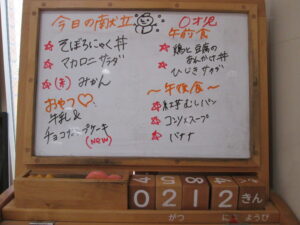 今日の献立
☆そぼろにんにく丼
☆マカロニサラダ
☆(未)みかん
おやつ♡
牛乳&
チョコチップケーキ
(NEW)
0才児
午前食
☆鶏と豆腐の
あんかけ丼
ひじきサラダ
～午後食～
☆紅芋むしパン
☆コンソメスープ
☆バナナ
0212きん
がつ にち ようび